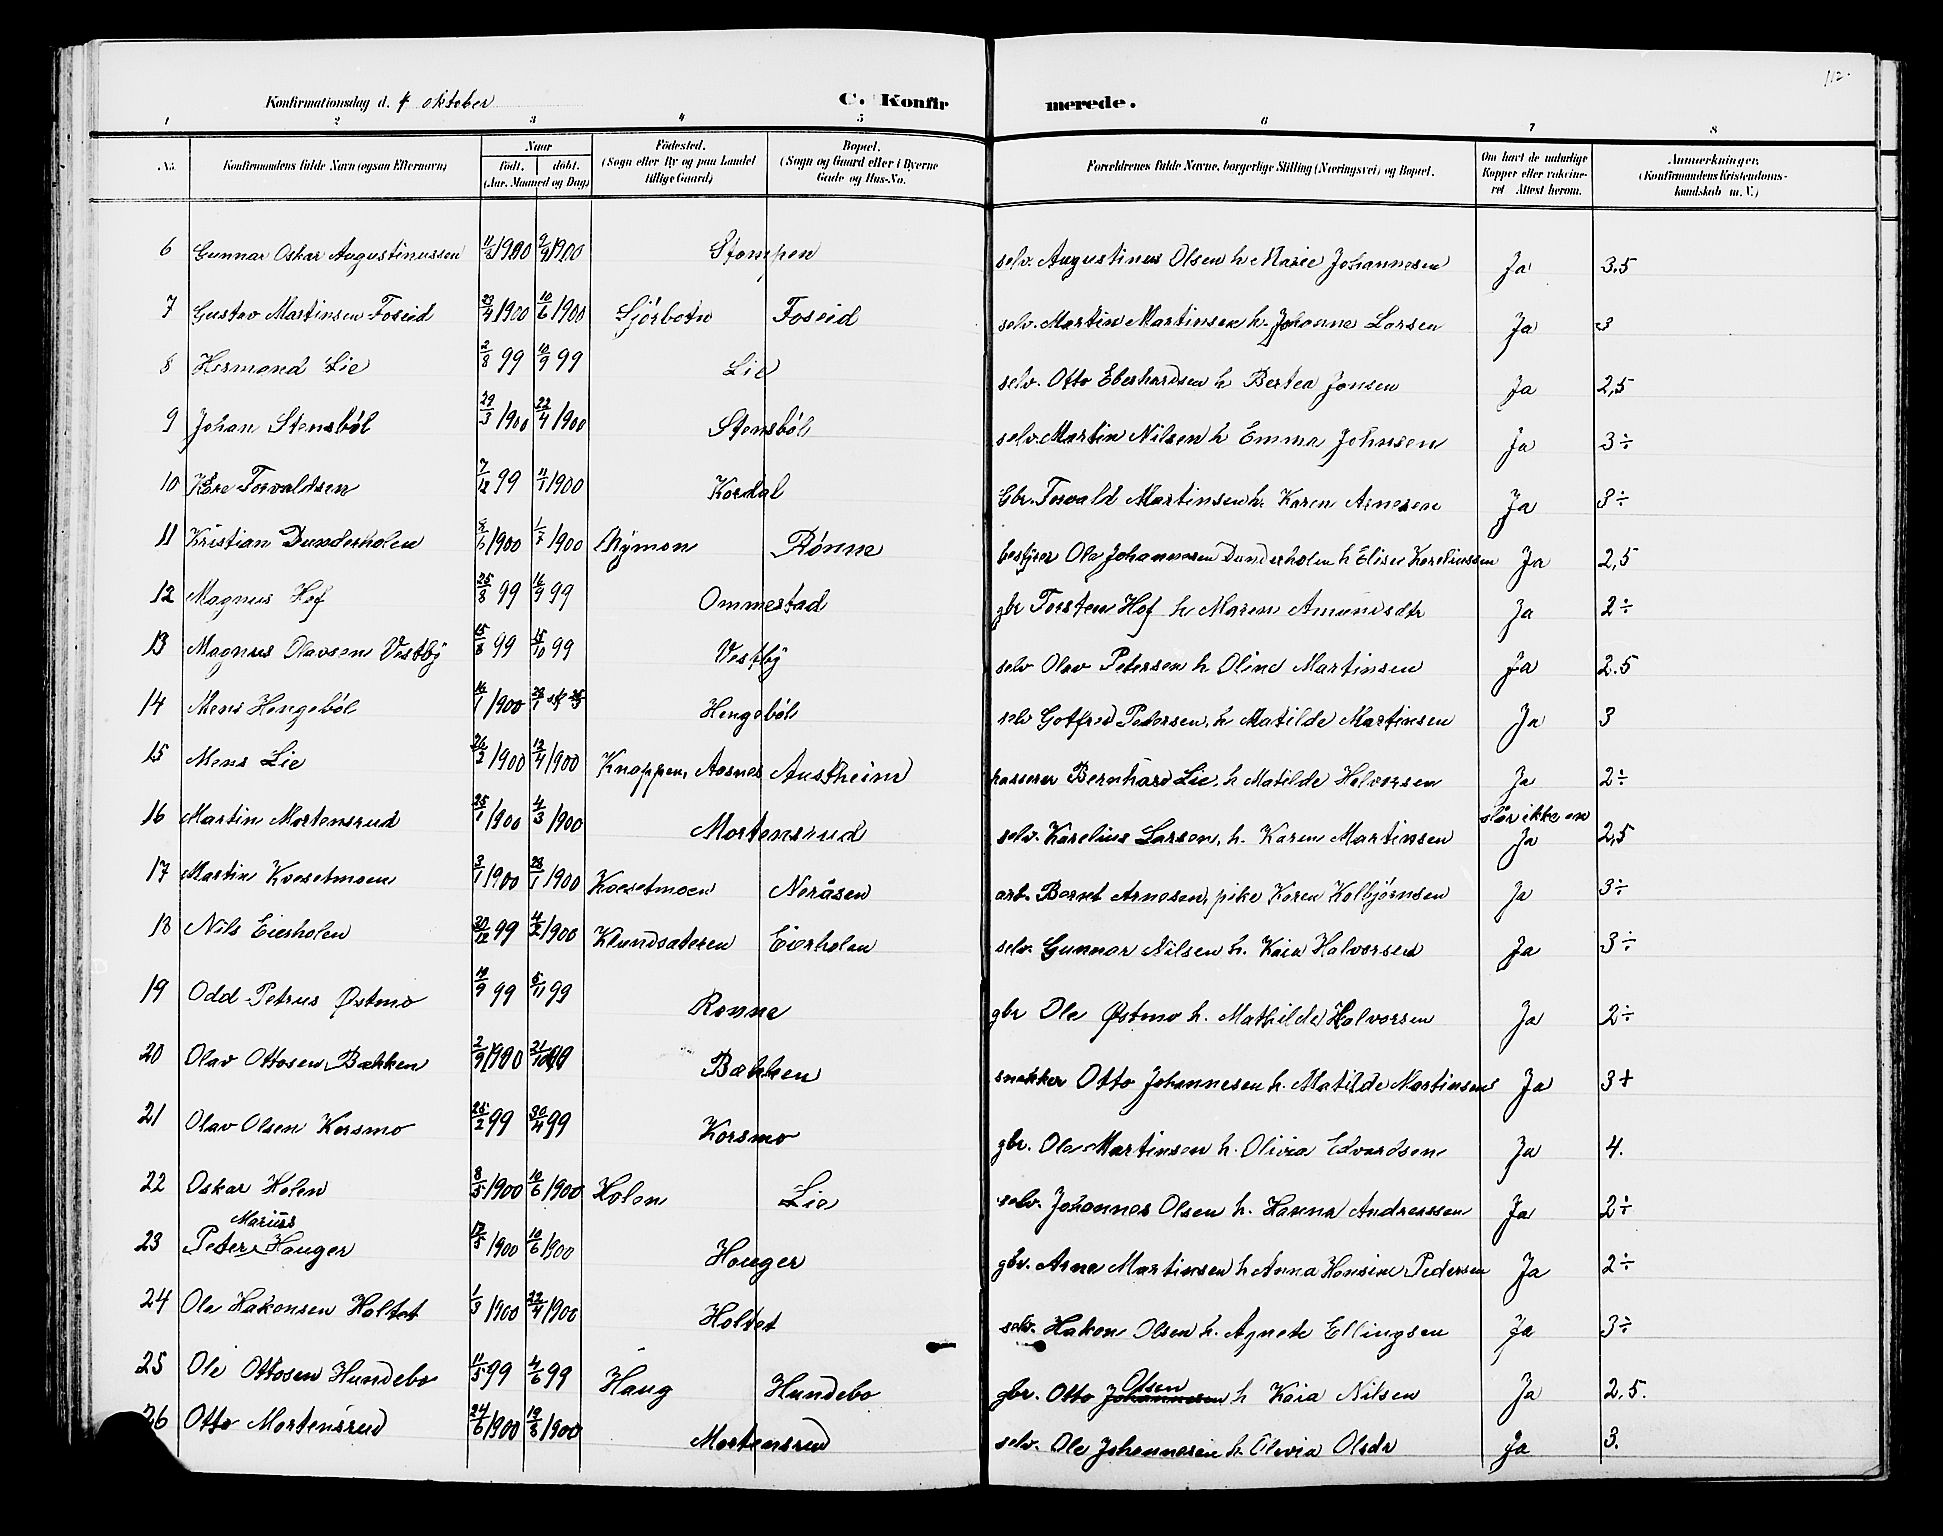 112.
Konfirmationsdag d. 4 oktober C. Konfir merede.
1 2 3 4 5 6 7 8
No. Konfirmandens fulde Navn (ogsaa Efternavn) Naar født. døbt. (Aar, Maaned og Dag) Fødested. (Sogn eller By og paa Landet tillige Gaard) Bopæl. (Sogn og Gaard eller i Byerne Gade og Hus-No. Forældrenes fulde Navne, borgerlige Stilling (Næringsvei) og Bopæl. Om havt de naturlige Kopper eller vakcineret Attest herom. Anmerkninger. (Konfirmandens Kristendomskundskab m. V.)
6 Gunnar Oskar Augustinussen 1900 9/9 1900 Stompen selv. Augustinus Olsen h Marie Johannesen Ja 3.5
7 Gustav Martinsen Foseid 1900 10/6 1900 Sjörbotn Foseid selv. Martin Martinsen h. Johanne Larsen Ja 3
8 Hermand Lie 2/8 99 10/9 99 Lie selv. Otto Eberhardsen h Bertea Jonsen Ja 2,5
9 Johan Stensböl 29/3 1900 22/4 1900 Stensböl selv. Martin Nilsen h Emma Johnsen Ja 3÷
10 Kåre Torvaldsen 7/12 99 11/1 1900 Kordal Gbr. Torvald Martinsen h. Karen Arnesen Ja 3÷
11 Kristian Dunderholen /6 1900 1/7 1900 Mymon Rønne bestyrer Ole Johannesen Dunderholen h Elise Karelinssen Ja 2,5
12 Magnus Hof 25/8 99 99 Ommestad gbr Torsten Hof h Maren Amundsdtr Ja 2÷
13 Magnus Olavsen Vestby 15/8 99 15/10 99 Vestby selv Olav Petersen h Oline Martinsen Ja 2.5
14 Mens Hengeböl 16/1 1900 Hengeböl selv Gotfred Pedersen, h Matilde Martinsen Ja 3
15 Mens Lie 26/2 1900 1900 Knappen, Aasnes Austheim kasserer Bernhard Lie, h Matilde Halvorsen Ja 2÷
16 Martin Mortensrud 25/1 1900 4/3 1900 Mortensrud selv. Karelius Larsen, h. Karen Martinsen slår ikke an Ja 2,5
17 Martin Kvesetmoen 3/1 1900 28/1 1900 Kvesetmoen Neråsen arb. Bernt Arnesen, pike Karen Kolbjørnsen Ja 3÷
18 Nils Eierholen 20/12 99 4/2 1900 Klundsæteren Eierholen selv. Gunnar Nilsen h. Kaia Halvorsen Ja 3÷
19 Odd Petrus Østmo 10/9 99 5/11 99 Rønne gbr Ole Østmo h. Mathilde Halvorsen Ja 2÷
20 Olav Ottosen Bækken 2/9 1900 21/10 Bækken snekker Otto Johannesen h. Matilde Martinsens Ja 3+
21 Olav Olsen Korsmo 25/2 99 30/4 99 Korsmo gbr. Ole Martinsen h. Olivia Edvardsen Ja 4.
22 Oskar Holen 8/5 1900 10/6 1900 Holen Lie selv. Johannes Olsen h. Hanna Andreassen Ja 2÷
Marius
23 Peter Hauger 17/5 1900 10/6 1900 Hauger gbr. Arne Martinsen h Anna Hansine Pedersen Ja 2÷
24 Ole Hakonsen Holtet 1/3 1900 22/4 1900 Holtet selv. Hakon Olsen h. Agnete Ellingsen Ja 3÷
25 Ole Ottosen Hundebo 11/5 99 4/6 99 Haug Hundebo gbr. Otto Johannesen Olsen h Kaia Nilsen Ja 2,5.
26 Otto Mortensrud 24/6 1900 19/8 1900 Mortensrud selv. Ole Johannesen h. Olivia Olsdr Ja 3.